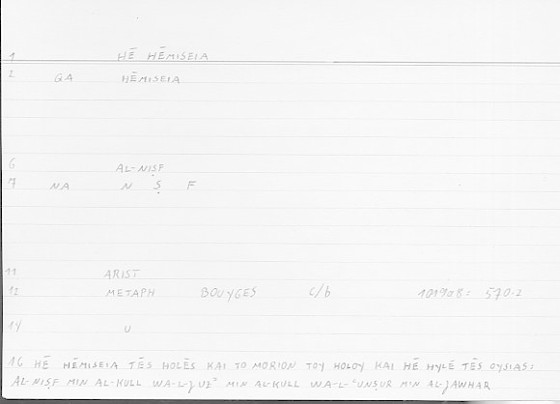 1 HĒ HĒMISEIA
2 GA HĒMISEIA
6 AL-NIṢF
7 NA N Ṣ F
11 ARIST
12 METAPH BOUYGES C/b 1019a8: 570.2
14 U
16 HĒ HĒMISEIA TĒS HOLĒS KAI TO MORION TOY HOLOY KAI HĒ HYLĒ TĒS OYSIAS:
AL-NIṢF MIN AL-KULL WA-L-ǦUZʾ MIN AL-KULL WA-L-ʿUNṢUR MIN AL-JAWHAR